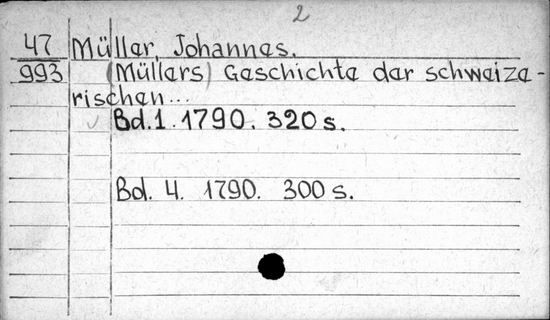 2
47 Müller, Johannes.
993 (Müllers) Geschichte der schweize-
rischen...
Bd. 1. 1790. 320 s.
Bd. 4. 1790. 300 s.